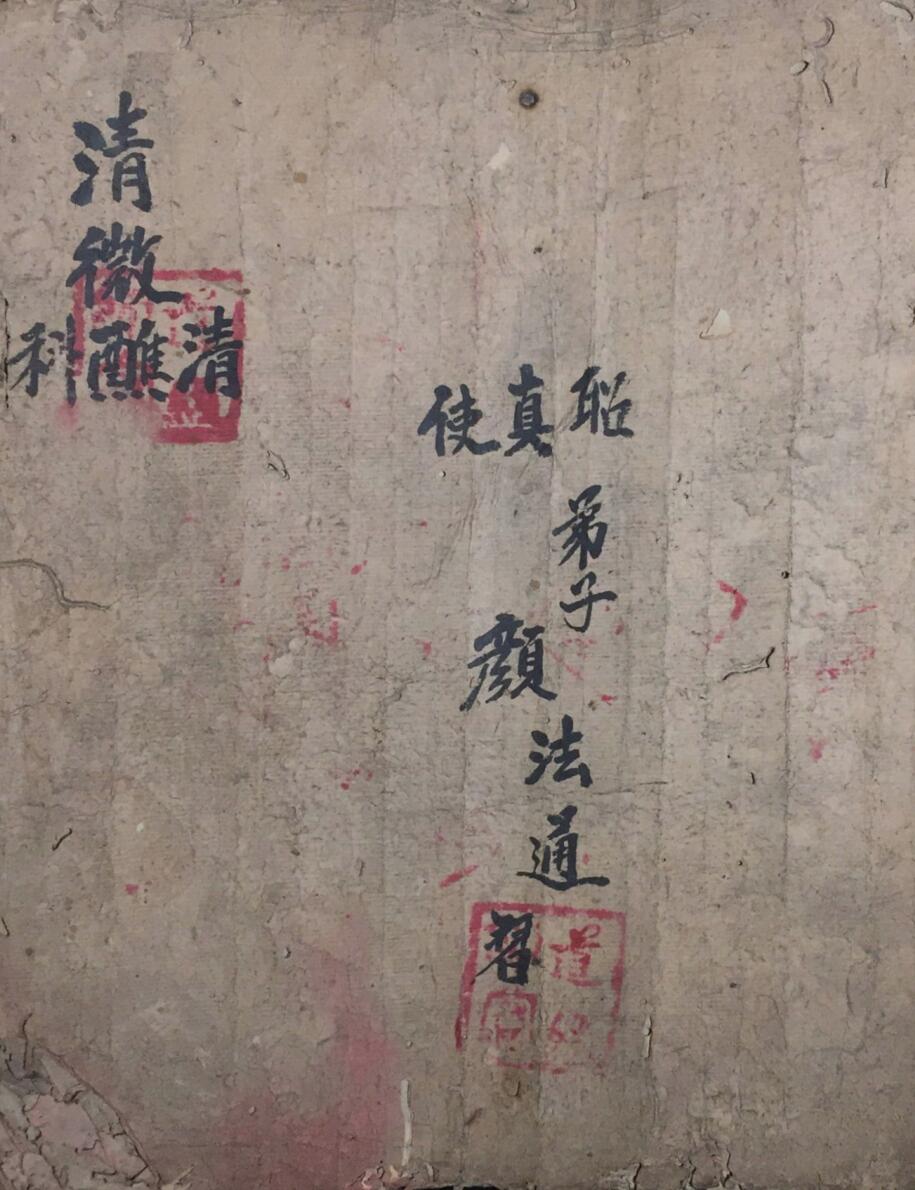 真使
弟子
顏法通
習
道
清微
清醮科